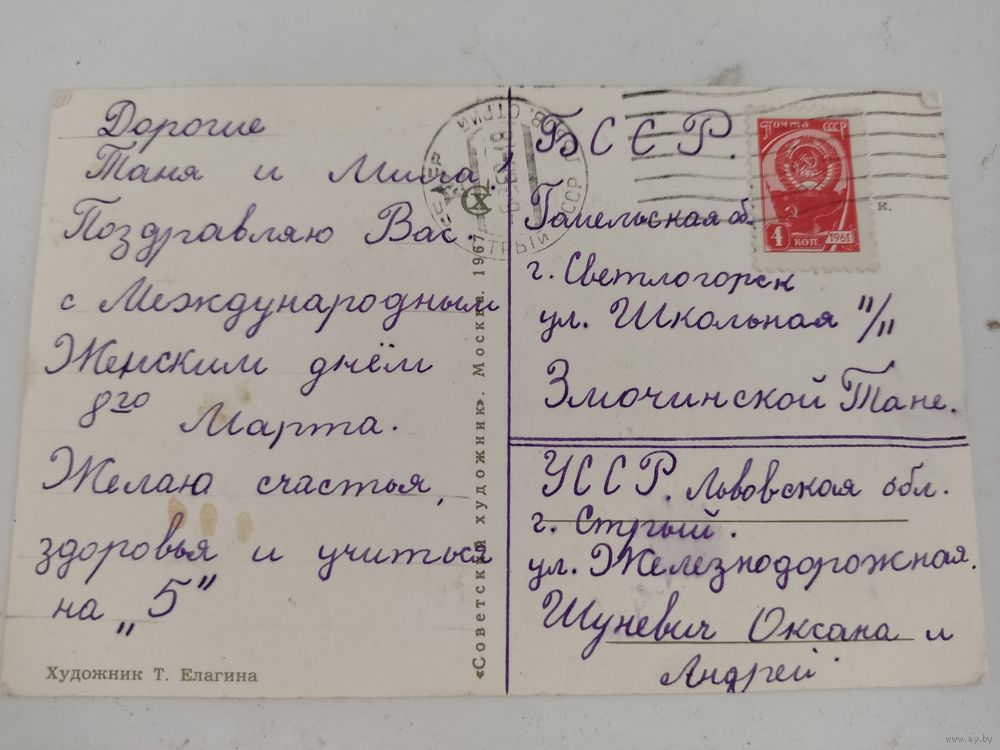 Дорогие
Таня и Миша.
Поздравляю Вас.
с Международным
Женским днём
8го Марта.
Желаю счастья,
здоровья и учиться
на „5"
Художник Т. Елагина
«Советский художник». Москва. 1967
БССР.
Гомельская об.
г. Светлогорск
ул. Школьная "/"
Змочинской Тане.
ПОЧТА СССР
4 КОП 1961
к.
УССР. Львовская обл.
г. Стрый.
ул. Железнодорожная.
Шуневич Оксана и
Андрей
www.ay.by